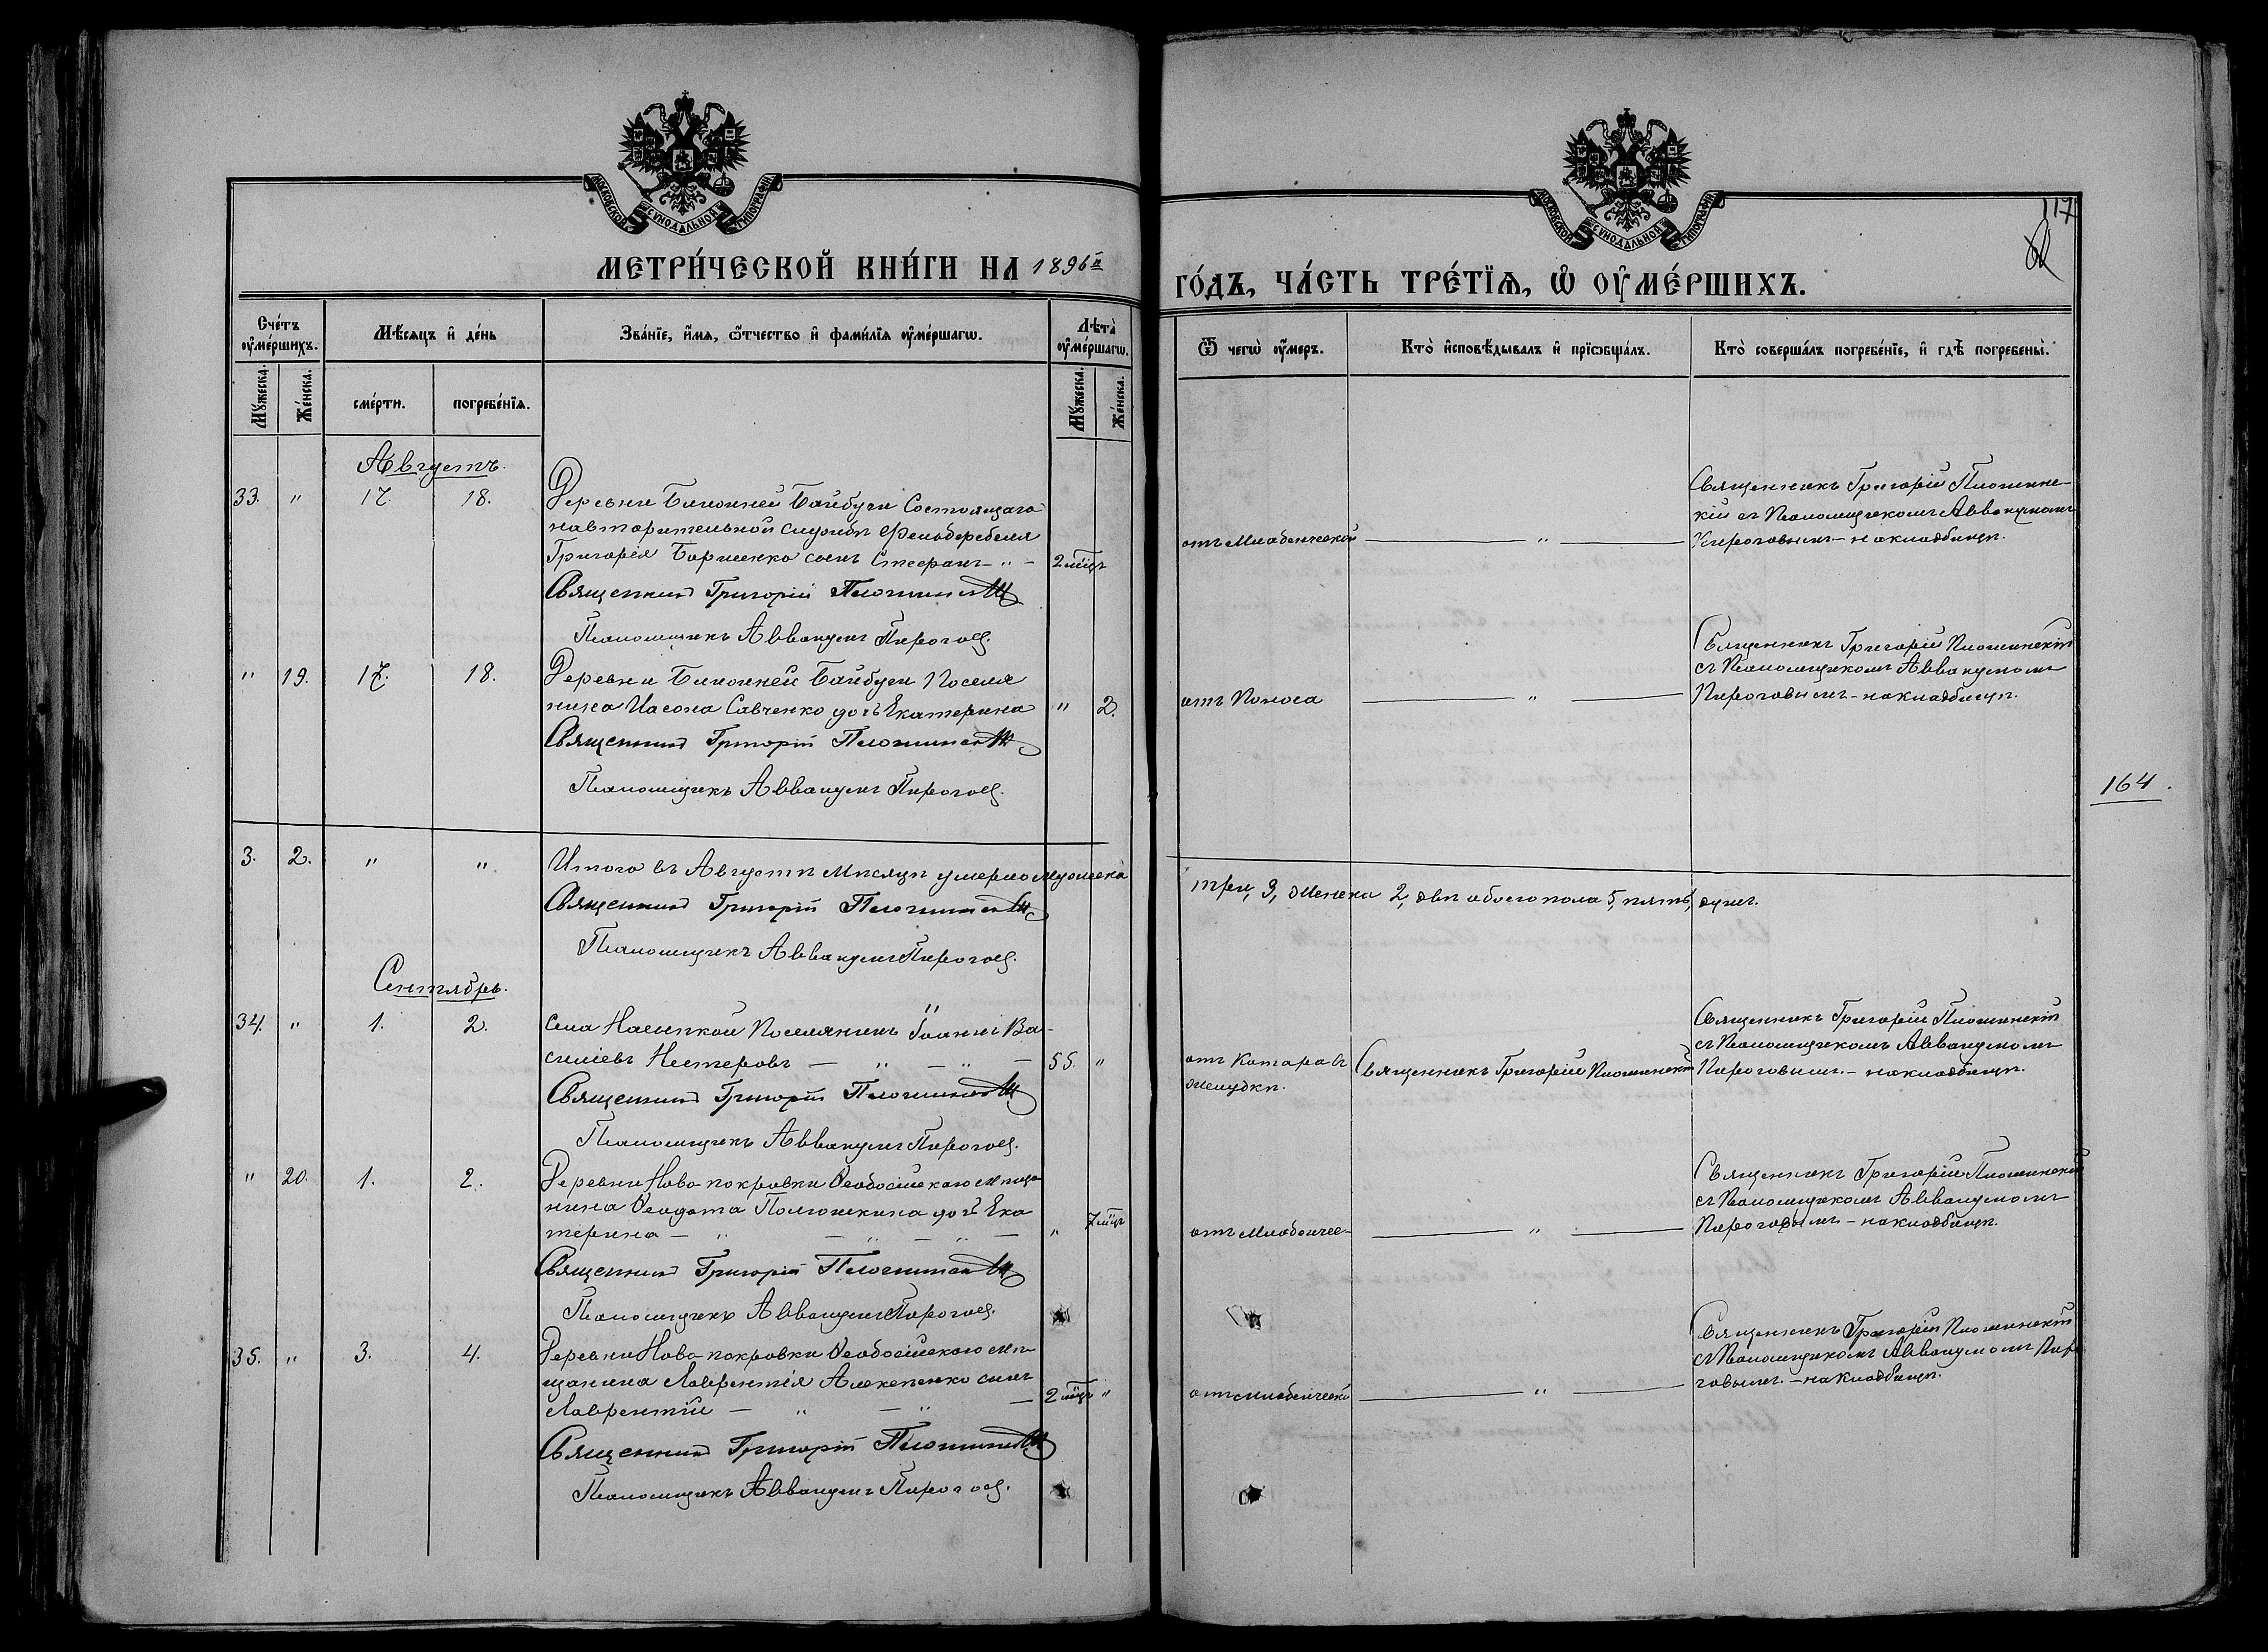 МОСКОВСКОЙ СѴНОДАЛЬНОЙ ТИПОГРАФІИ
МЕТРИ́ЧЕСКОЙ КНИ́ГИ НА 1896й
Сче́тъ ᲂу҆ме́ршихъ.
Мѣ́сяцъ и҆ де́нь
Зва́нїе, и҆́мѧ, ѻ҆́тчество и҆ фами́лїѧ ᲂу҆ме́ршагѡ.
Лѣ́та ᲂу҆ме́ршагѡ.
Мꙋ́жеска.
Же́нска.
сме́рти.
погребе́нїѧ.
Мꙋ́жеска.
Же́нска.
Августъ.
33. " 17. 18. Деревни Ближней Байбуги Состоящаго
на вторительной службѣ Фельдфебеля
Григорія Борженко сынъ Стефанъ - " - 2 мѣц.
Священникъ Григорій
Псаломщикъ Аввакумъ Пироговъ.
" 19. 17. 18. Деревни Ближней Байбуги Поселя
нина Иасона Савченко дочь Екатерина " 2.
Священникъ Григорій
Псаломщикъ Аввакумъ Пироговъ.
3. 2. " " Итого въ Августѣ мѣсяцѣ умерло мужеска
Священникъ Григорій
Псаломщикъ Аввакумъ Пироговъ.
Сентябрь.
34. " 1. 2. Села Насыпкой Поселянинъ Іоаннъ Ва-
силіевъ Нестеровъ — " — " — 55. "
Священникъ Григорій
Псаломщикъ Аввакумъ Пироговъ.
" 20. 1. 2. Деревни Ново-покровки Ѳеодосійскаго мѣща
нина Ѳеодота дочь Ека
терина — " — " — " — " 7 мѣц.
Священникъ Григорій
Псаломщикъ Аввакумъ Пироговъ.
35. " 3. 4. Деревни Ново-покровки Ѳеодосійскаго мѣ-
щанина Лаврентія сынъ
Лаврентій — " — " — 2 мѣц. "
Священникъ Григорій
Псаломщикъ Аввакумъ Пироговъ.
МОСКОВСКОЙ СѴНОДАЛЬНОЙ ТИПОГРАФІИ
117
ГО́ДЪ, ЧА́СТЬ ТРЕ́ТЇѦ, Ѡ҆ ОУ҆МЕ́РШИХЪ.
Ѿ чегѡ̀ ᲂу҆́меръ.
Кто̀ и҆сповѣ́дывалъ и҆ прїѡбща́лъ.
Кто̀ соверша́лъ погребе́нїе, и҆ гдѣ̀ погребены̀.
отъ Младенческой — " — Священникъ Григорій
съ Псаломщикомъ Аввакумомъ
Пироговымъ - на кладбищѣ.
отъ Поноса — " — Священникъ Григорій
съ Псаломщикомъ Аввакумомъ
Пироговымъ - на кладбищѣ.
164.
три, 3, женска 2, двѣ обоего пола 5, пять, душъ.
отъ Катара въ
желудкѣ. Священникъ Григорій
Священникъ Григорій
съ Псаломщикомъ Аввакумомъ
Пироговымъ. - на кладбищѣ.
отъ Младенчес- — " — Священникъ Григорій
съ Псаломщикомъ Аввакумомъ
Пироговымъ - на кладбищѣ.
отъ младенческой — " — Священникъ Григорій
съ Псаломщикомъ Аввакумомъ Пиро
говымъ. - на кладбищѣ.